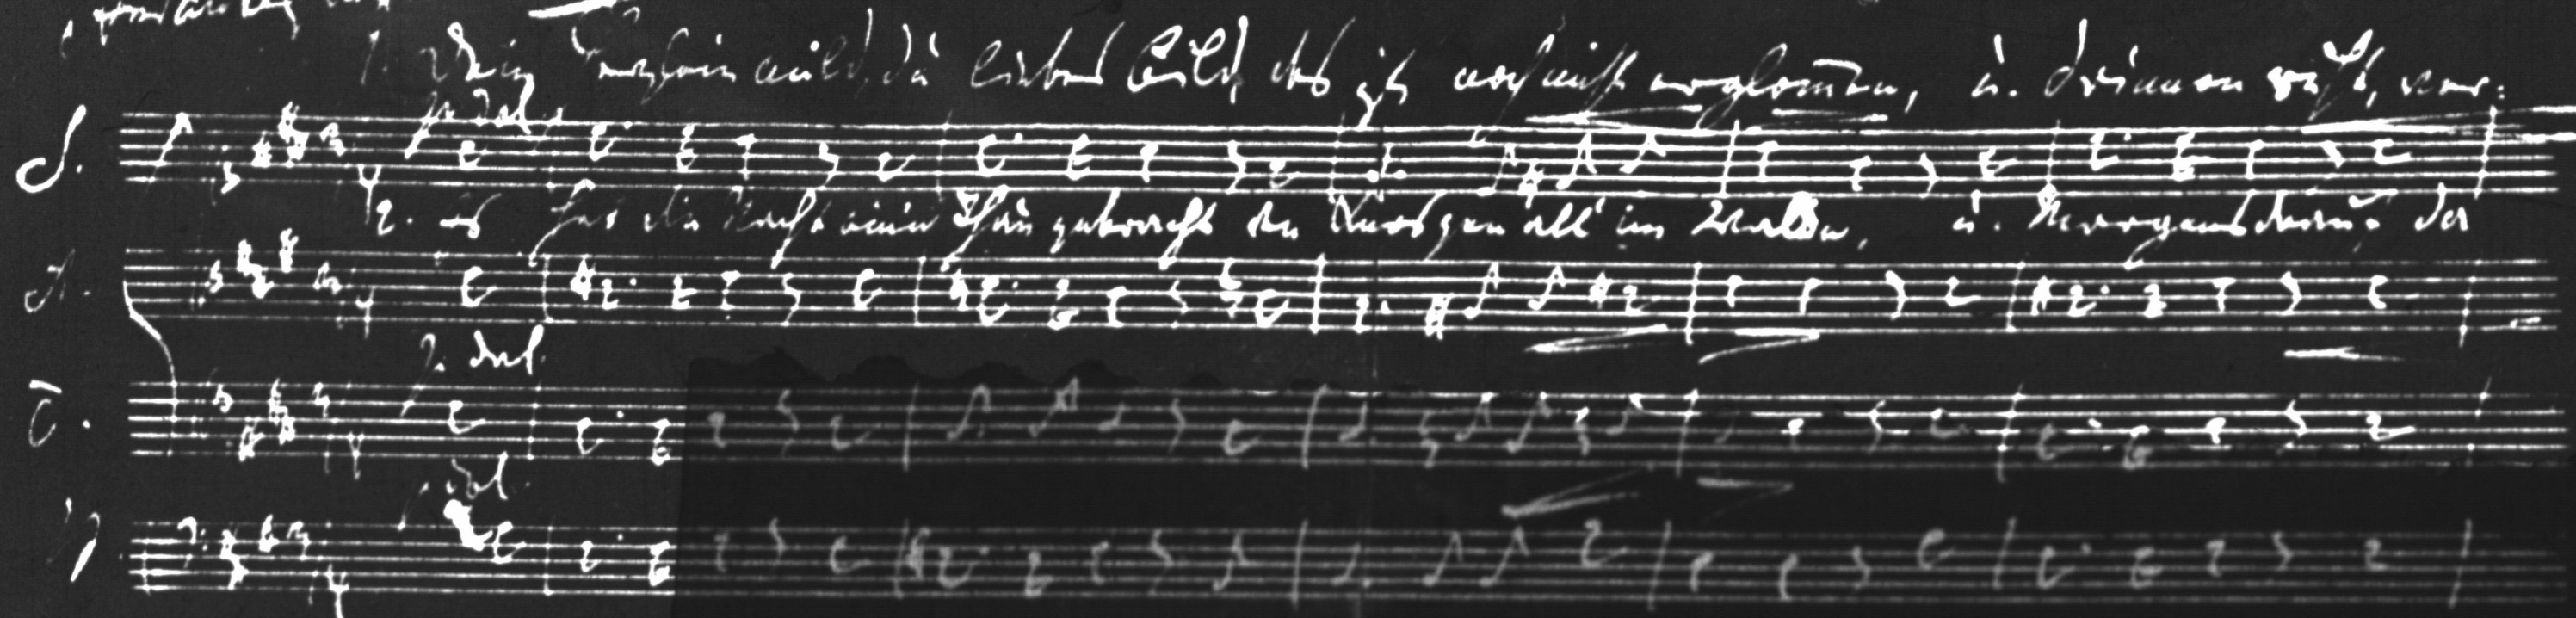 1. Dein Herzlein mild, du liebes Bild, das ist noch nicht erglom̄en, u. drinnen ruht, ver:
S. p. dol.
2. Es hat die Nacht einen Thau gebracht den Knospen all' im Walde, u. Morgens drauf da
A.
p. dol.
T.
p. dol.